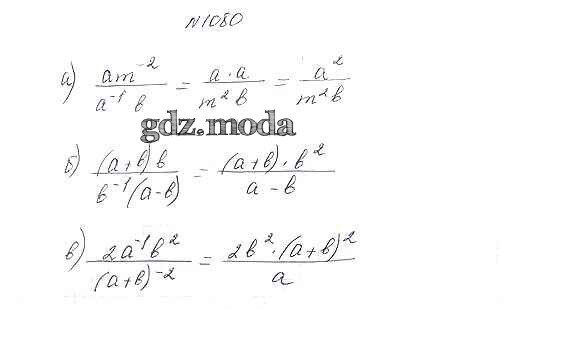 N1080
а) am⁻² / a⁻¹ b = a · a / m² b = a² / m² b
gdz.moda
б) (a+b) b / b⁻¹ (a-b) = (a+b) · b² / a - b
в) 2a⁻¹ b² / (a+b)⁻² = 2b² · (a+b)² / a